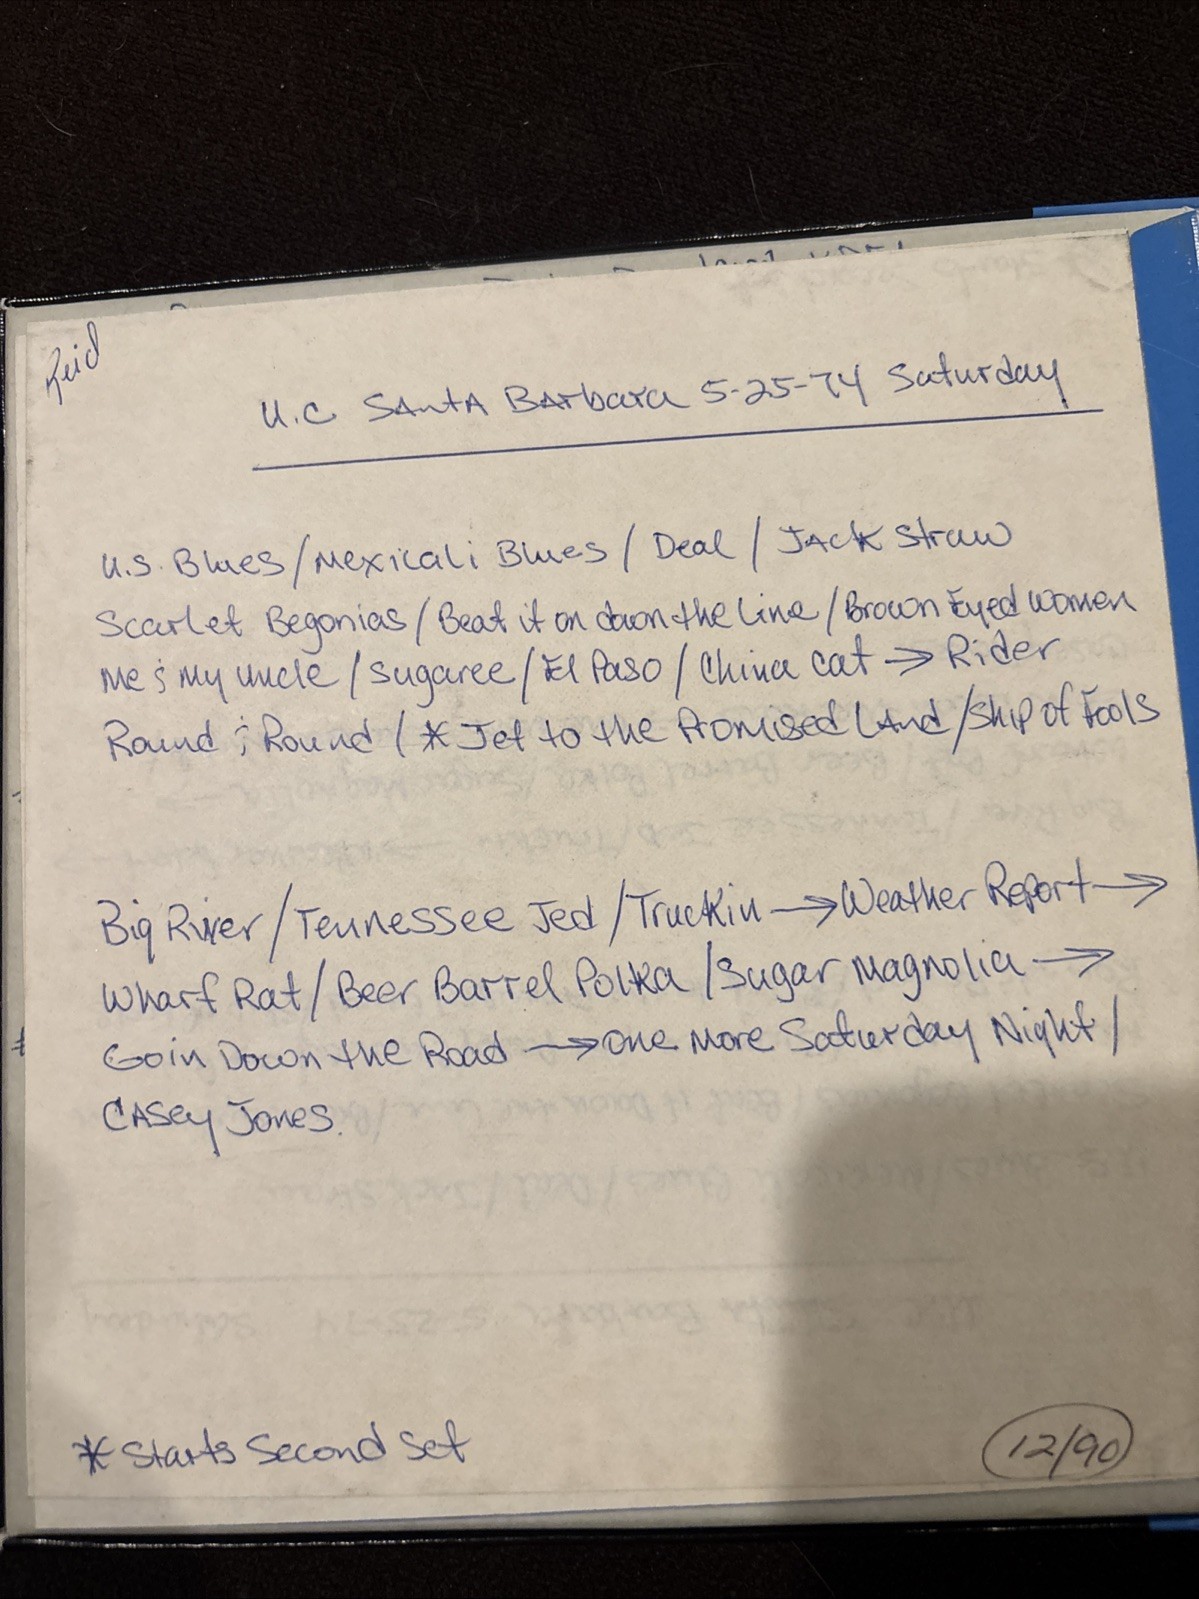 Reid
U.C Santa Barbara 5-25-74 Saturday
U.S. Blues / Mexicali Blues / Deal / Jack Straw
Scarlet Begonias / Beat it on down the Line / Brown Eyed Women
Me & My Uncle / Sugaree / El Paso / China Cat → Rider
Round & Round / * Jet to the Promised Land / Ship of Fools
Big River / Tennessee Jed / Truckin → Weather Report →
Wharf Rat / Beer Barrel Polka / Sugar Magnolia →
Goin Down the Road → One More Saturday Night /
Casey Jones.
* Starts Second Set
12/90